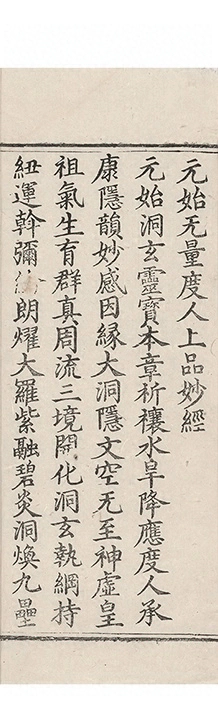 元始无量度人上品妙經
元始洞玄靈寶本章祈禳水旱降應度人承
康隱韻妙感因緣大洞隱文空无至神虛皇
祖氣生育群真周流三境開化洞玄執綱持
紐運幹彌朗燿大羅紫融碧炎洞煥九壘